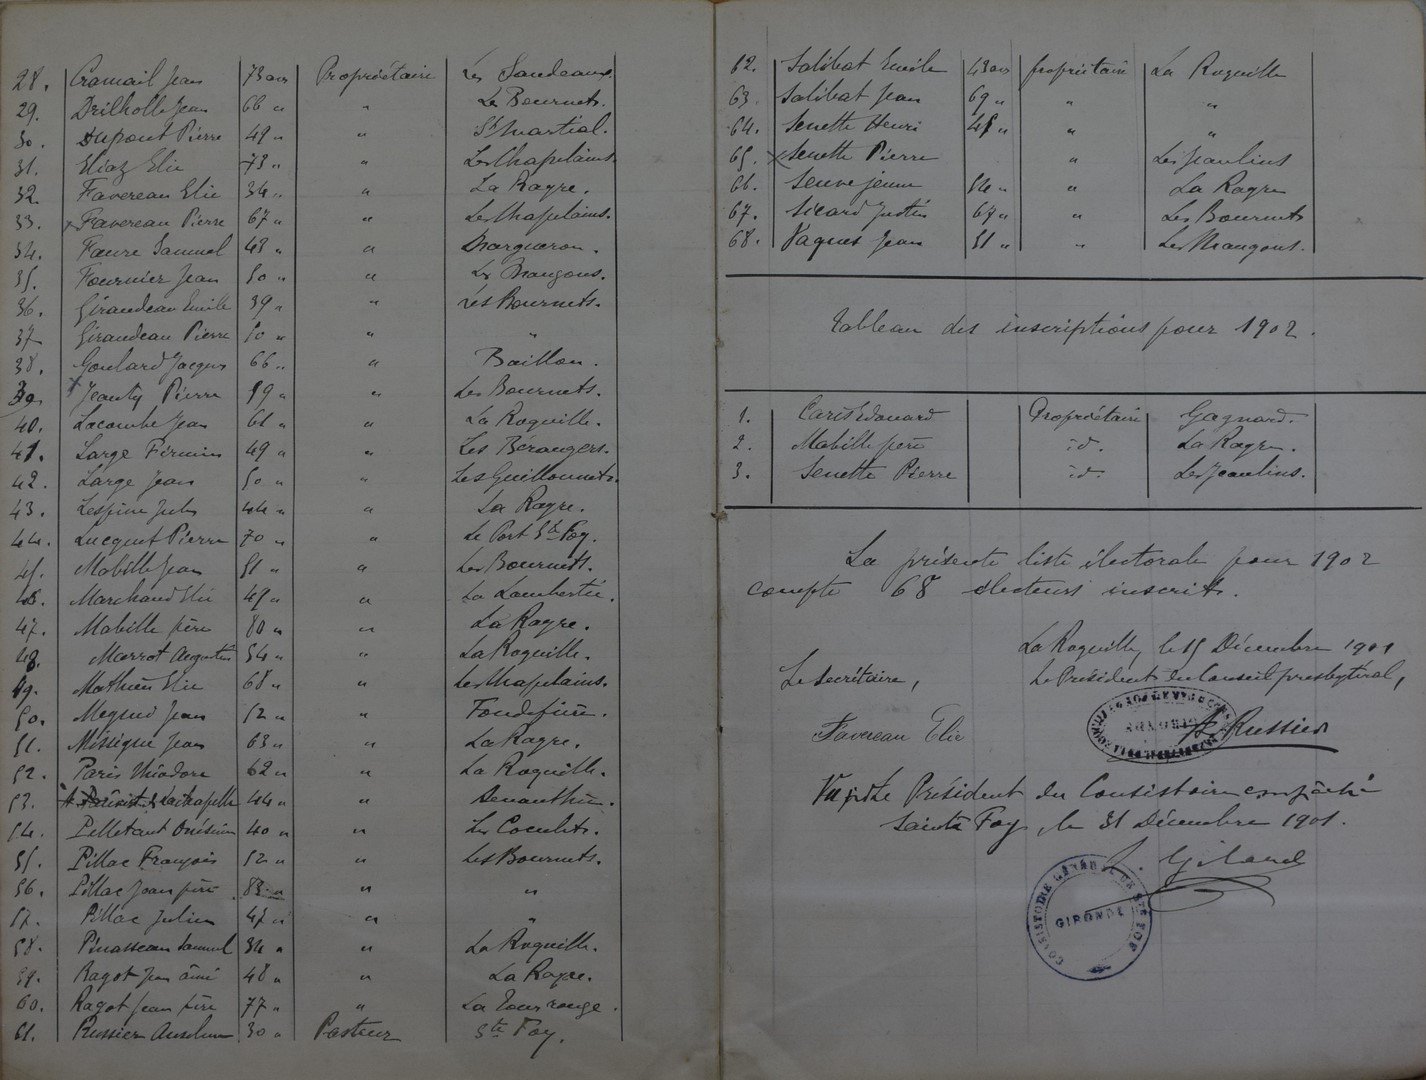 28. Cramail Jean 73 ans Propriétaire Les Sandeaux.
29. Drilholle Jean 66 " " Le Bournets.
30. Dupont Pierre 49 " " St Martial.
31. Eliaz Elie 73 " " Les Chapelains.
32. Favereau Elie 34 " " La Rayre.
33. x Favereau Pierre 67 " " Les Chapelains.
34. Faure Samuel 43 " "
35. Fournier Jean 50 " " Les Mangons.
36. Girandeau Emile 39 " " Les Bournets.
37. Girandeau Pierre 50 " " "
38. Goulard Jacques 66 " " Baillon.
39. x Jeanty Pierre 59 " " Les Bournets.
40. Lacombe Jean 61 " " La Roquille.
41. Large Firmin 49 " " Les Bérangers.
42. Large Jean 50 " " Les Guillonnets.
43. Lespine Jules 44 " " La Rayre.
44. Lucquet Pierre 70 " " Le Port Ste Foy.
45. Mabille Jean 51 " " Les Bournets.
46. Marchand Elie 49 " " La Lambertie.
47. Mabille père 80 " " La Rayre.
48. Marrot Augustin 54 " " La Roquille.
49. Mathieu Elie 68 " " Les Chapelains.
50. Jean 52 " "
51. Jean 63 " " La Rayre.
52. Paris Théodore 62 " " La Roquille.
53. Lachapelle 44 " "
54. Pelletant Onésime 40 " " Les
55. Pillac François 52 " " Les Bournets.
56. Pillac Jean père 83 " " "
57. Pillac Julien 47 " " "
58. Pinasseau Samuel 34 " " La Roquille.
59. Ragot Jean aîné 48 " " La Rayre.
60. Ragot Jean père 77 " " La Tour rouge.
61. Russier Anselme 30 " Pasteur Ste Foy.
62. Salibat Emile 43 ans propriétaire La Roquille
63. Salibat Jean 69 " " "
64. Senette Henri 45 " " "
65. x Senette Pierre " Les Jeaulins
66. Seuve jeune 54 " " La Rayre
67. Sicard Justin 67 " " Les Bournets
68. Vaques Jean 51 " " Les Mangons.
Tableau des inscriptions pour 1902.
1. Caris Edouard Propriétaire Gagnard.
2. Mabille père id. La Rayre.
3. Senette Pierre id. Les Jeaulins.
La présente liste électorale pour 1902
compte 68 électeurs inscrits.
La Roquille, le 15 Décembre 1901
Le secrétaire, Le Président du Conseil presbytéral,
Favereau Elie A. Russier
Vu par le Président du Consistoire
Sainte Foy, le 31 Décembre 1901.
CONSISTOIRE GÉNÉRAL DE STE FOY
GIRONDE